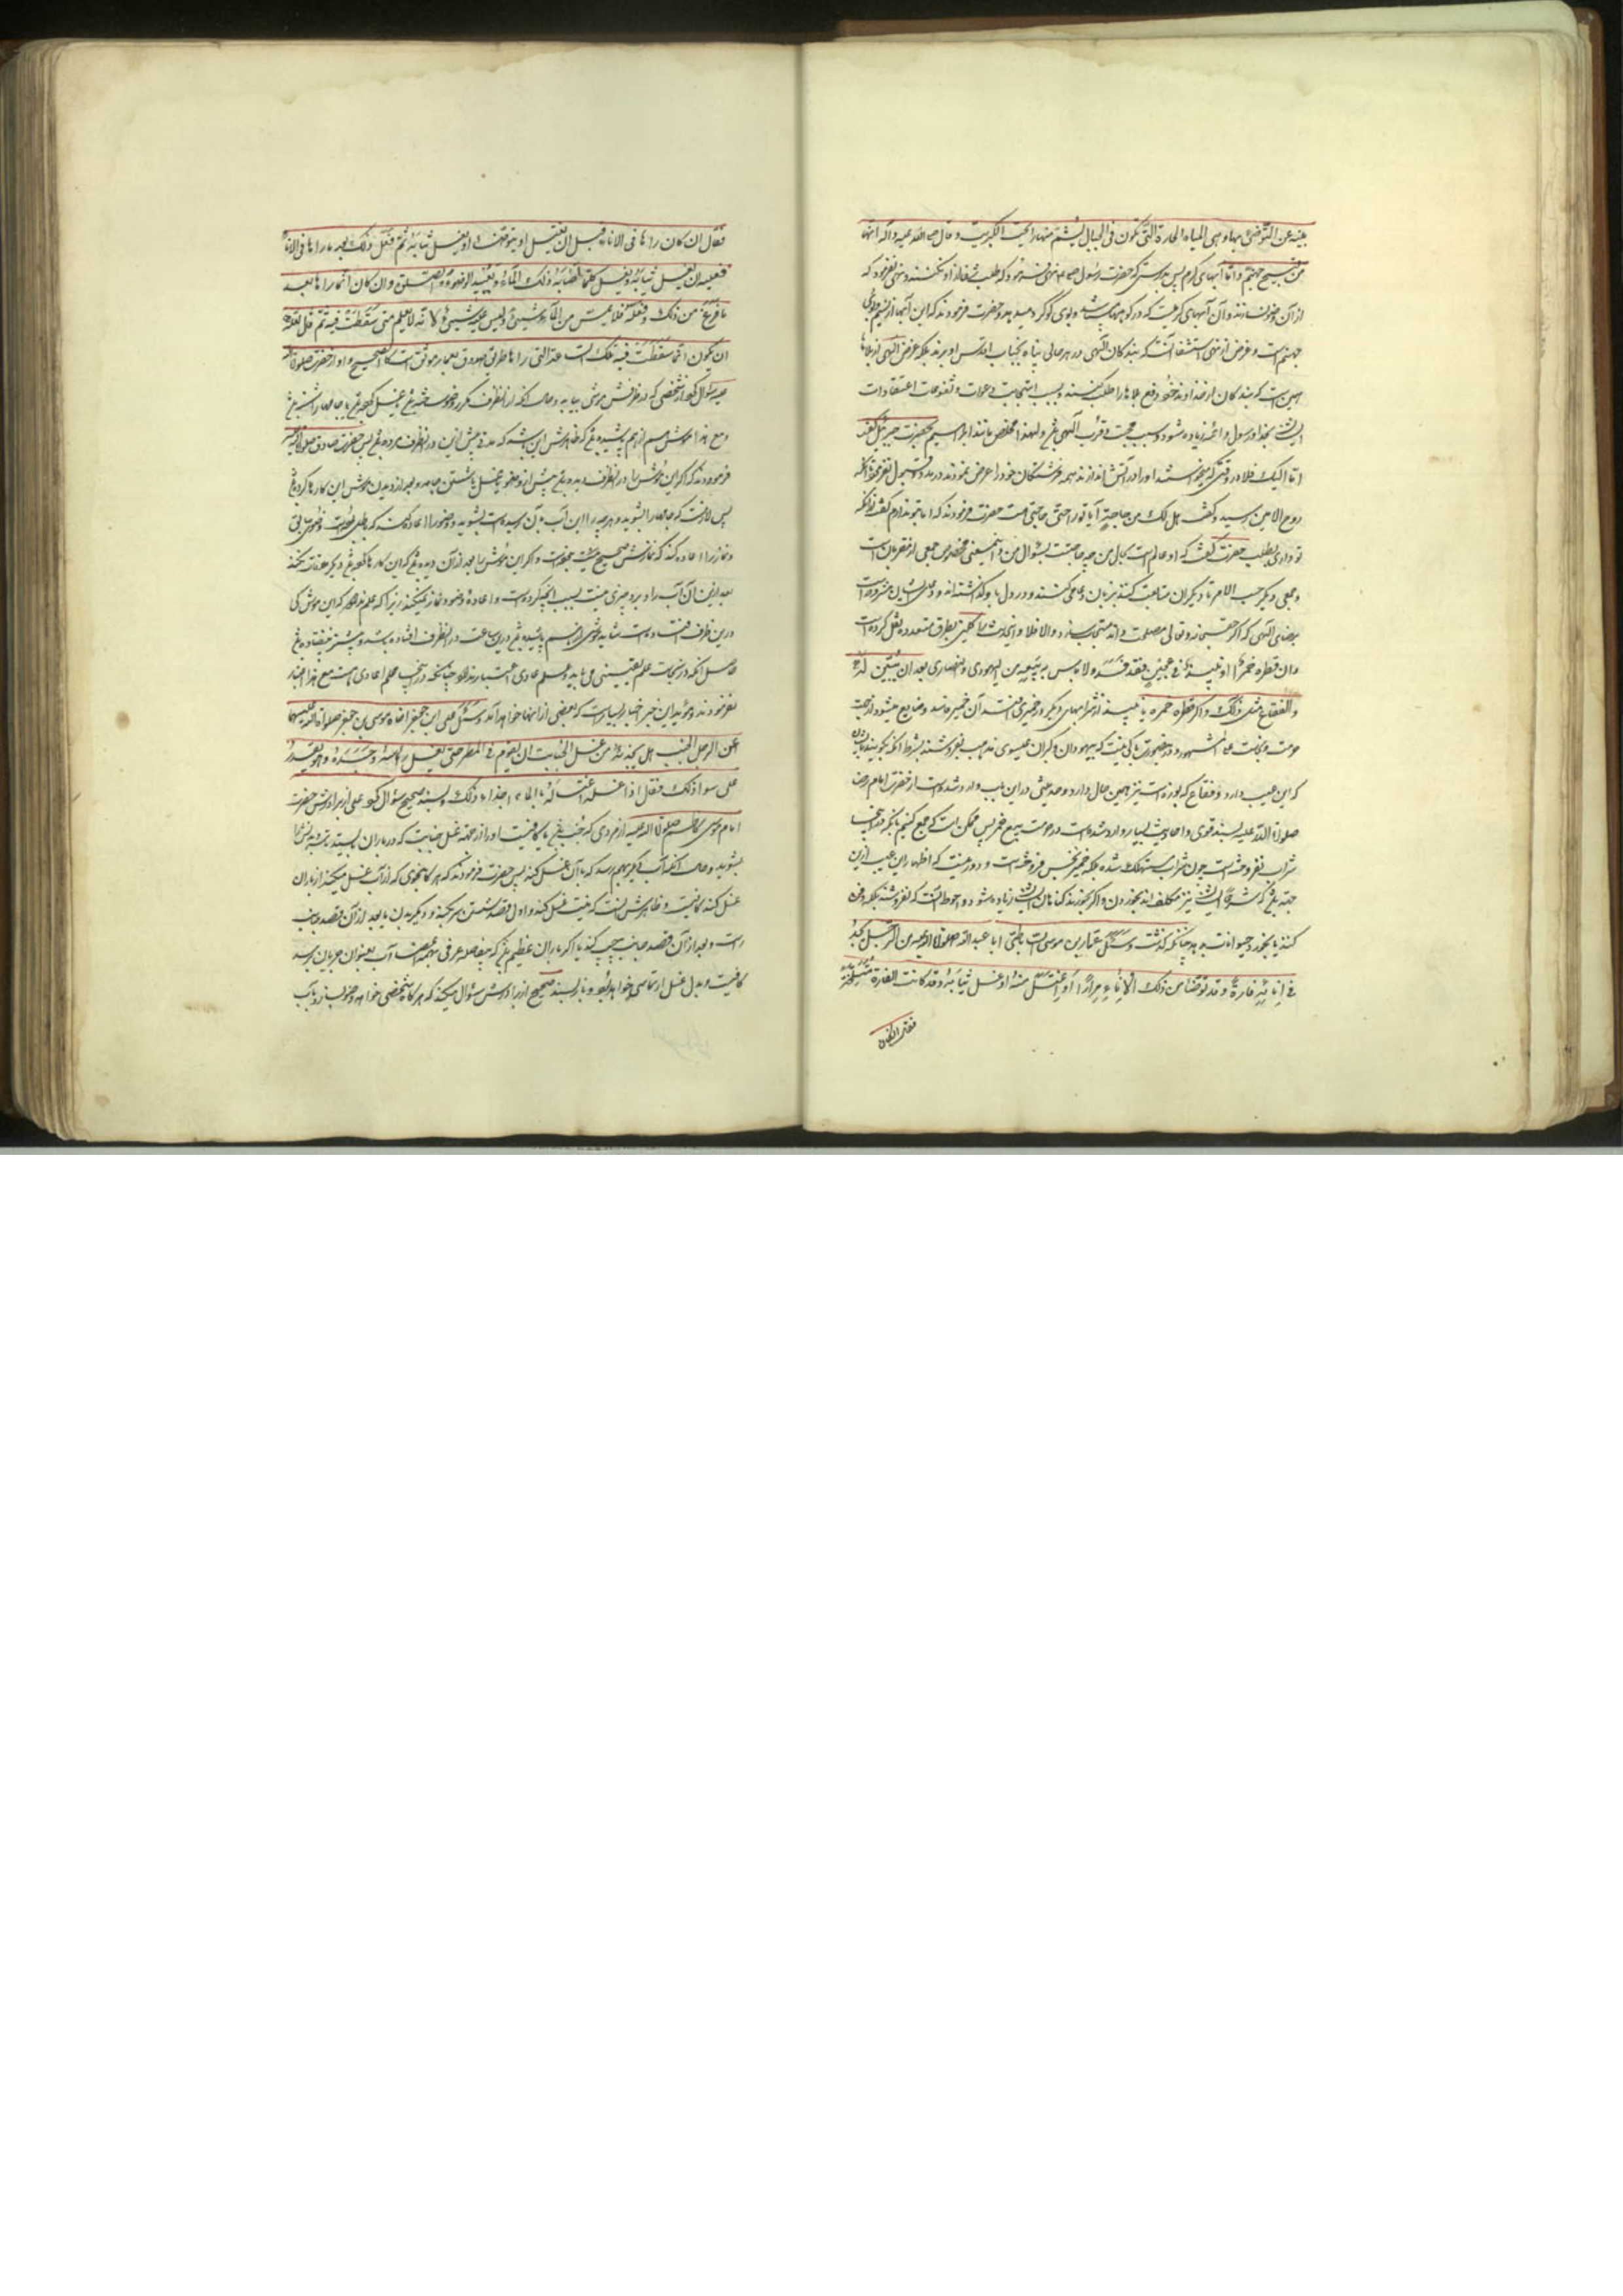 عن التوضی بها و هی المیاه الحارة التی تکون فی الجبال یشم منها رایحة الکبریت و قال صلی الله علیه و آله انها
من فیح جهنم و اما آبهای گرم پس بدرستی که حضرت رسول نهی فرمود که طلب شفا از او نکنند و نهی نفرمود که
از آن وضو نسازند و آن آبهای گرمیست که در کوهها می باشد و بوی گوگرد میدهد و حضرت فرمودند که این آبها از
جهنم است و غرض از نهی استشفا آنست که بندگان الهی در هر حالی پناه بجناب اقدس او برند بلکه غرض الهی از بلاها
این است که بندگان از خداوند خود دفع بلاها را طلب کنند و بسبب استجابت دعوات و اعتقادات
ایشان بخدا و رسول و ائمه زیاده شود و سبب محبت و قرب الهی و لهذا مخلص مانند ابراهیم بحضرت جبرئیل گفت
اما الیک فلا در وقتی که میخواستند او را در آتش اندازند همه فرشتگان خود را عرض نمودند
روح الامین رسید و گفت هل لک من حاجة آیا تو را حاجتی هست حضرت فرمودند که اما بتو ندارم گفت از آنکه
تو داری بطلب حضرت گفت که او عالم است بحال من چه حاجتست بسؤال من و این معنی مخصوص جمعی از مقربان است
و جمعی دیگر حسب الامر با دیگران متابعت کنند بزبان دعا می کنند و در دل باو گذاشته اند
برضای الهی که اگر حق سبحانه و تعالی مصلحت داند مستجاب سازد و الا فلا و این حدیث را کلینی بطرق متعدده نقل کرده است
و ان قطر خمر او نبیذ فی عجین فقد فسد و لا باس ببیعه من الیهودی و النصاری بعد ان یبین لهم
و الفقاع مثل ذلک و اگر قطره خمر یا نبیذ از شرابهای دیگر در خمیری افتد آن خمیر فاسد و ضایع میشود از جهت
حرمت و نجاست علی المشهور و در فروختن باکی نیست که بیهودان و گبران عیسوی مذهب بفروشند بشرط آنکه بگویند بایشان
که این عیب دارد و فقاع که بوزه است نیز همین حال دارد و حدیثی در این باب وارد شده است از حضرت امام رضا
صلوات الله علیه بسند قوی و احادیث بسیار وارد شده است در حرمت بیع خمر پس ممکن است که جمع کنیم باینکه در اینجا
شراب نفروخته است چون شراب مستهلک شده بلکه خمیر نجس فروخته است و دور نیست که اظهار این عیب از این
جهة باشد که ایشان نیز مکلف اند بخوردن و اگر بخورند گناهان ایشان زیاده شود و احوط آنست که نفروشند بلکه دفن
کنند یا بخورد حیوانات بدهد چنانکه گذشت و سئل عمار بن موسی الساباطی ابا عبد الله صلوات الله علیه عن الرجل یجد
فی انائه فارة و قد توضأ من ذلک الاناء مرارا او اغتسل منه او غسل ثیابه و قد کانت الفارة متسلخة
فقال ان کان
فقال ان کان راها فی الاناء قبل ان یغتسل او یتوضأ او یغسل ثیابه ثم فعل ذلک بعد ما راها فی الاناء
فعلیه ان یغسل ثیابه و یغسل کلما اصابه ذلک الماء و یعید الوضوء و الصلوة و ان کان انما راها بعد
ما فرغ من ذلک و فعله فلا یمس من الماء شیئا و لیس علیه شیئ لانه لا یعلم متی سقطت فیه ثم قال لعله
ان یکون انما سقطت فیه تلک الساعة التی راها طریق صدوق بعمار موثق است کالصحیح و او از حضرت صلوات الله
علیه سؤال کرد از شخصی که در ظرفش موشی بیابد و حال آنکه از آن ظرف مکرر وضو ساخته باشد یا غسل کرده باشد یا جامه را شسته باشد
و مع هذا موش از هم پاشیده باشد که ظاهرش این باشد که مدتی پیش ازین در آن ظرف مرده باشد پس حضرت صادق صلوات الله علیه
فرمودند که اگر این موش را در آن ظرف دیده باشد پیش از وضو یا غسل یا شستن جامه و بعد از دیدن موش این کارها کرده باشد
پس لازمست که جامه را بشوید و هر چه را این آب بآن رسیده است بشوید و وضو را اعاده کند
و نماز را اعاده کند که نمازش صحیح نیست و اگر این موش را بعد از آن دیده باشد که این کارها کرده باشد دیگر ملاقات نکند
بعد ازین آن آب را و برو چیزی نیست بسبب آنچه کرده است و اعاده وضو و نماز نمیکند زیرا که علم ندارد که این موش کی
درین ظرف افتاده است شاید موشی از هم پاشیده باشد درین ساعت در آن ظرف افتاده باشد و پیشتر نیفتاده باشد
حاصل آنکه در نجاست علم یقینی می باید و علم عادی اعتبار ندارد چنانکه در علم عادی هست مع هذا اعتبار
نفرمودند و مؤید این خبر اخبار بسیار است که بعضی از آنها خواهد آمد و سئل علی بن جعفر اخاه موسی بن جعفر صلوات الله علیهما
عن الرجل الجنب هل یجزیه من غسل الجنابة ان یقوم فی المطر حتی یغسل راسه و جسده و هو یقدر
علی سوا ذلک فقال اذا غسله اغتساله بالماء اجزاه ذلک و بسند صحیح سؤال کرد علی از برادرش حضرت
امام موسی کاظم صلوات الله علیه از مردی که جنب باشد آیا کافیست او را از جهت غسل جنابت که در باران بایستد تا سر و تنش را
بشوید و حال آنکه آب دیگر بهم رسد که بآن غسل کند پس حضرت فرمودند که هرگاه بنحوی که از آب غسل میکند از باران
غسل کند کافیست و ظاهرش آنست که نیت غسل کند و اول قصد شستن سر کند و دیگر بدن یا بعد از آن قصد جانب
راست و بعد از آن قصد جانب چپ کند یا اگر باران عظیم باشد که بیفاصله عرفی بهمه اعضا آب بعنوان جریان برسد
کافیست و بدل غسل ارتماسی خواهد بود و باز بسند صحیح از برادرش سؤال میکند که هرگاه شخصی خواهد وضو بسازد و آب